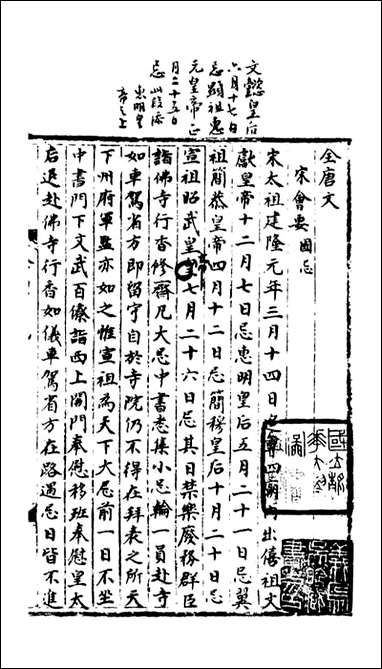 全唐文
宋會要 國忌
宋太祖建隆元年三月十四日 四 出僖祖文
獻皇帝十二月七日忌惠明皇后五月二十一日忌翼
祖簡恭皇帝四月十二日忌簡穆皇后十月二十日忌
宣祖昭武皇帝七月二十六日忌其日禁樂廢務群臣
詣佛寺行香修齋凡大忌中書悉集小忌輪一員赴寺
如車駕省方即留守自於寺院仍不得在拜表之所天
下州府軍監亦如之惟宣祖為天下大忌前一日不坐
中書門下文武百僚詣西上閤門奉慰移班奉慰皇太
后退赴佛寺行香如儀車駕省方在路遇忌日皆不進
文懿皇后
六月十七日
忌顯祖惠
元皇帝正
月二十五日
忌此段添
惠明皇
帝之上